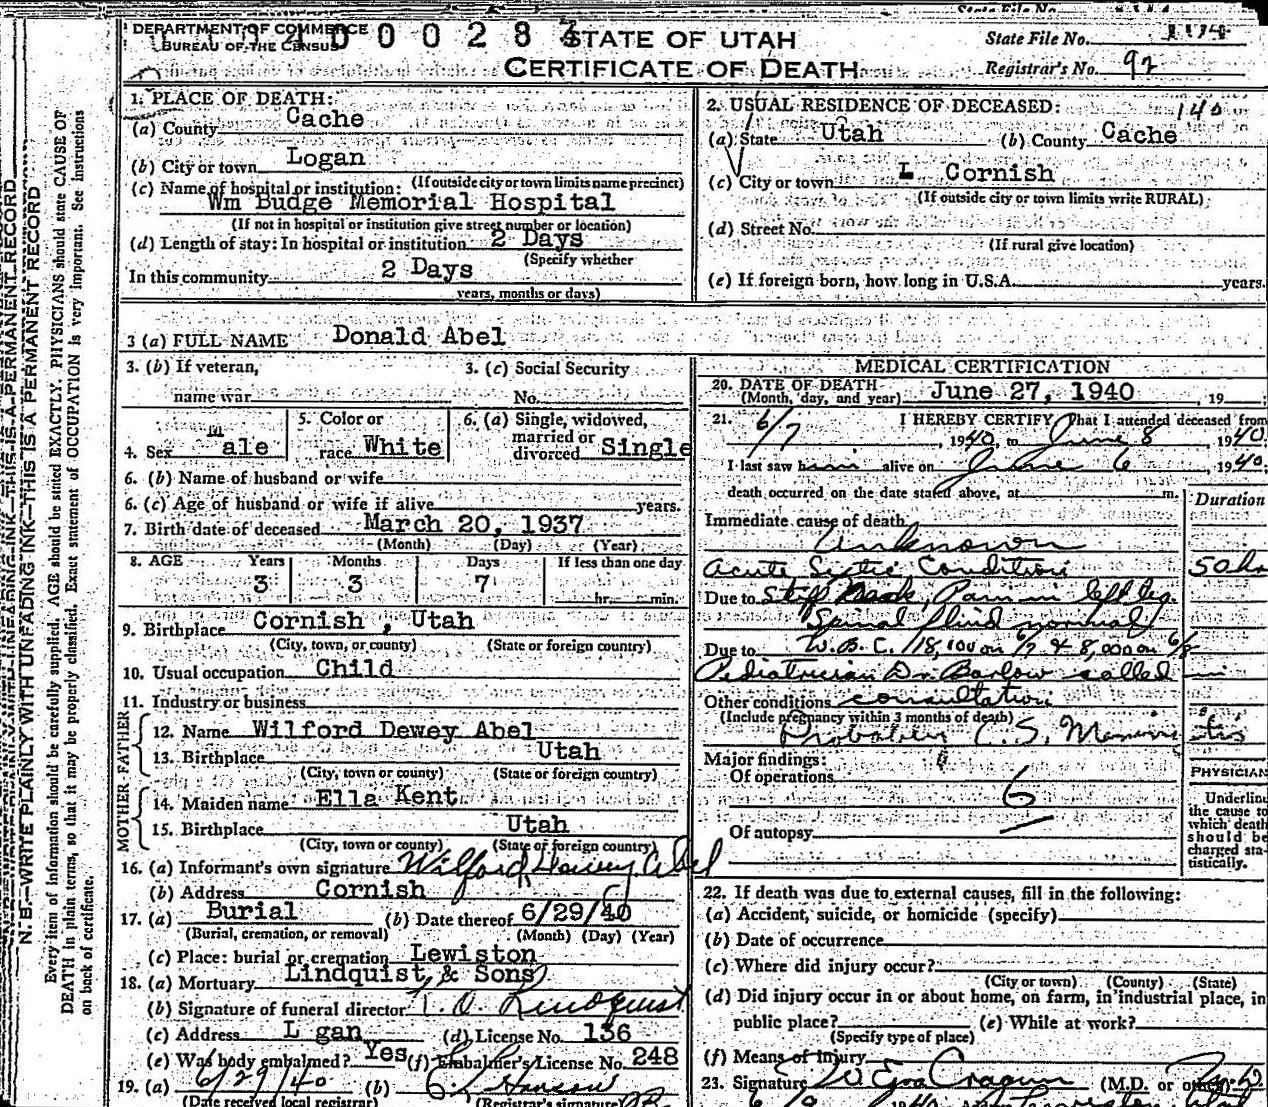 DEPARTMENT OF COMMERCE
BUREAU OF THE CENSUS
STATE OF UTAH
CERTIFICATE OF DEATH
State File No.
Registrar's No. 92
1. PLACE OF DEATH:
(a) County Cache
(b) City or town Logan
(If outside city or town limits name precinct)
(c) Name of hospital or institution:
Wm Budge Memorial Hospital
(If not in hospital or institution give street number or location)
(d) Length of stay: In hospital or institution 2 Days
(Specify whether
In this community 2 Days
years, months or days)
2. USUAL RESIDENCE OF DECEASED: 140
(a) State Utah (b) County Cache
(c) City or town L Cornish
(If outside city or town limits write RURAL)
(d) Street No.
(If rural give location)
(e) If foreign born, how long in U.S.A. years.
3 (a) FULL NAME Donald Abel
3. (b) If veteran,
name war
3. (c) Social Security
No.
4. Sex male
5. Color or
race White
6. (a) Single, widowed,
married or
divorced Single
6. (b) Name of husband or wife
6. (c) Age of husband or wife if alive years.
7. Birth date of deceased March 20, 1937
(Month) (Day) (Year)
8. AGE Years Months Days If less than one day
3 3 7 hr. min.
9. Birthplace Cornish , Utah
(City, town, or county) (State or foreign country)
10. Usual occupation Child
11. Industry or business
FATHER
12. Name Wilford Dewey Abel
13. Birthplace Utah
(City, town or county) (State or foreign country)
MOTHER
14. Maiden name Ella Kent
15. Birthplace Utah
(City, town or county) (State or foreign country)
16. (a) Informant's own signature Wilford Dewey Abel
(b) Address Cornish
17. (a) Burial (b) Date thereof 6/29/40
(Burial, cremation, or removal) (Month) (Day) (Year)
(c) Place: burial or cremation Lewiston
18. (a) Mortuary Lindquist & Sons
(b) Signature of funeral director Lindquist
(c) Address L gan (d) License No. 136
(e) Was body embalmed? Yes (f) Embalmer's License No. 248
19. (a) 6/29/40 (b)
(Date received local registrar) (Registrar's signature)
MEDICAL CERTIFICATION
20. DATE OF DEATH
(Month, day, and year) June 27, 1940, 19
21. I HEREBY CERTIFY That I attended deceased from
6/7, 1940, to June 8 1940.
I last saw him alive on June 6, 1940,
death occurred on the date stated above, at m.
Duration
Immediate cause of death
Unknown
Acute Septic Condition
Due to Stiff Neck, Pain in left leg.
Spinal fluid normal
Due to W.B.C. 18,100 on 6/7 & 8,000 on 6/8
Pediatrician Dr. Barlow called in
Other conditions consultation
(Include pregnancy within 3 months of death)
Probably C.S. Meningitis
Major findings:
Of operations
6
Of autopsy
PHYSICIAN
Underline
the cause to
which death
should be
charged sta-
tistically.
22. If death was due to external causes, fill in the following:
(a) Accident, suicide, or homicide (specify)
(b) Date of occurrence
(c) Where did injury occur?
(City or town) (County) (State)
(d) Did injury occur in or about home, on farm, in industrial place, in
public place? (e) While at work?
(Specify type of place)
(f) Means of Injury
23. Signature (M.D. or other)
N. B.—WRITE PLAINLY WITH UNFADING INK—THIS IS A PERMANENT RECORD
Every item of information should be carefully supplied. AGE should be stated EXACTLY. PHYSICIANS should state CAUSE OF
DEATH in plain terms, so that it may be properly classified. Exact statement of OCCUPATION is very important. See instructions
on back of certificate.